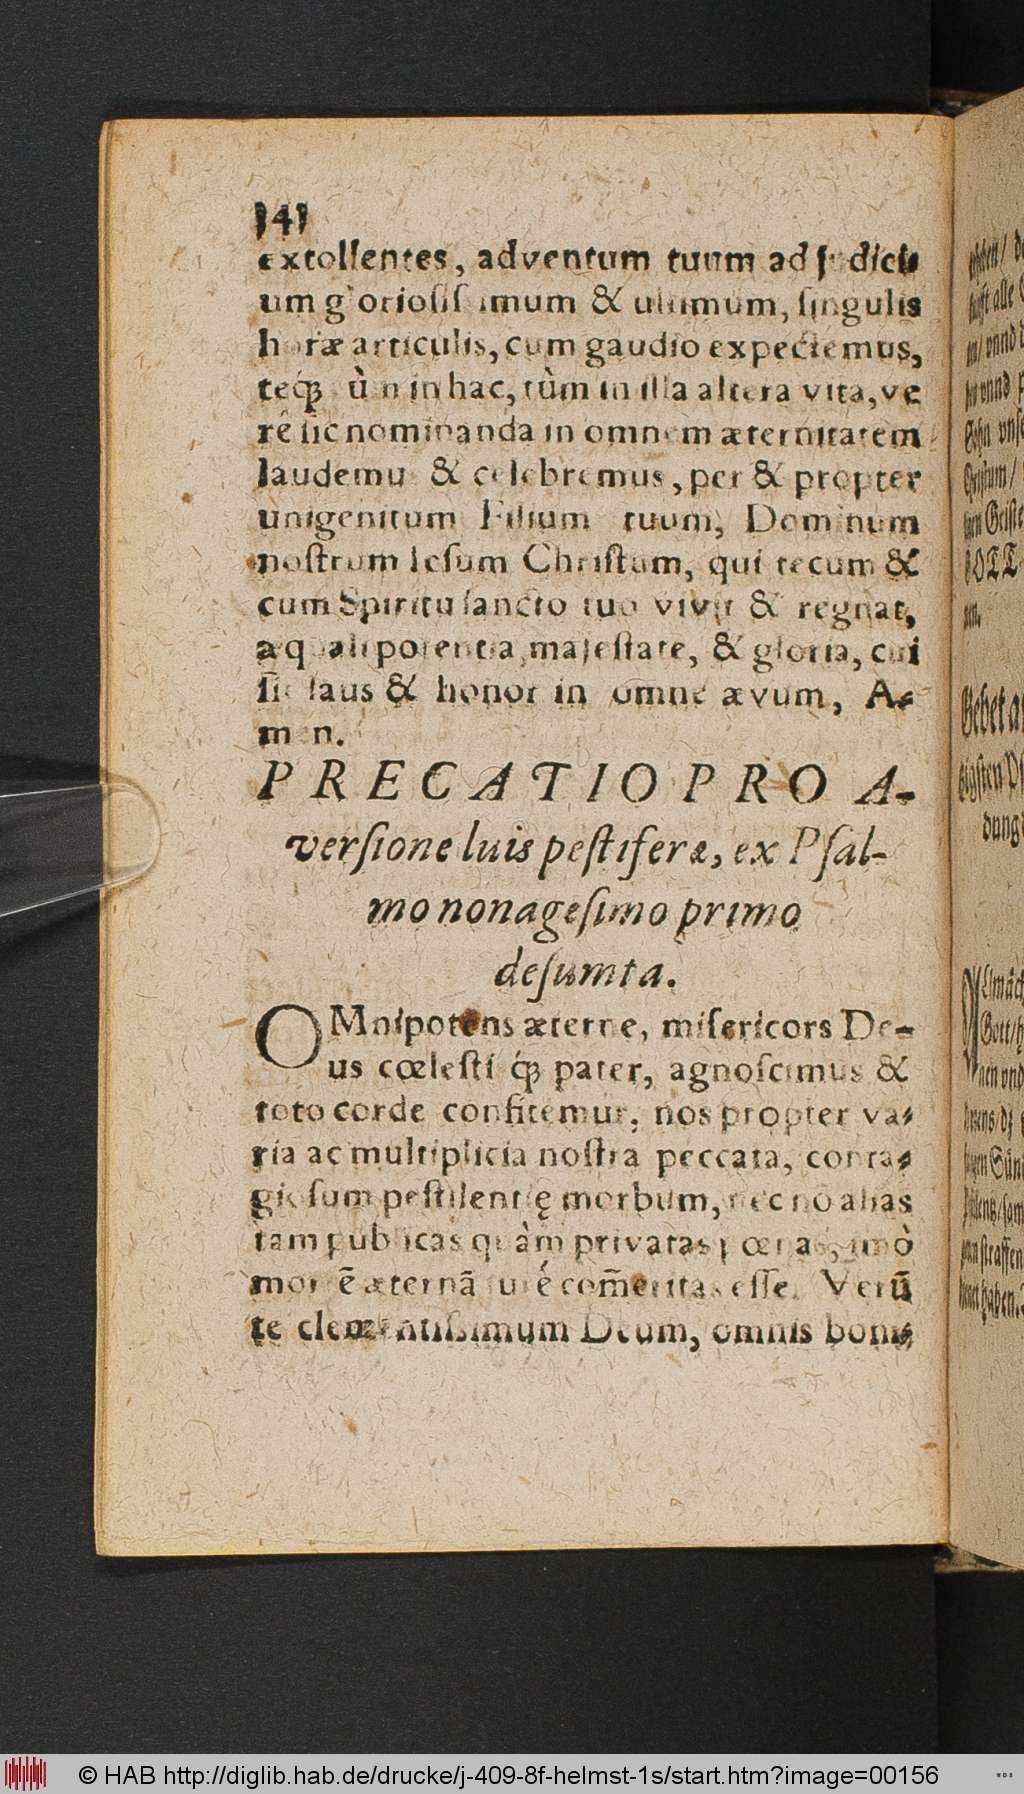 )4)
extollentes, adventum tuum ad judici⸗
um gloriosiſsimum & ultimum, ſingulis
horæ articulis, cum gaudio expectemus,
teq́; tùm in hac, tùm in illa altera vita, ve
rè ſic nominanda in omnem æternitatem
laudemus & celebremus, per & propter
unigenitum Filium tuum, Dominum
noſtrum Ieſum Chriſtum, qui tecum &
cum Spiritu ſancto tuo vivit & regnat,
æquali potentia, majeſtate, & gloria, cui
ſit laus & honor in omne ævum, A⸗
men.
PRECATIO PRO A-
verſione luis peſtiferæ, ex Pſal-
mo nonageſimo primo
deſumta.
OMnipotens æterne, miſericors De⸗
us cœleſtiq́; pater, agnoſcimus &
toto corde confitemur, nos propter va⸗
ria ac multiplicia noſtra peccata, conta⸗
gioſum peſtilentię morbum, nec nō alias
tam publicas quàm privatas pœnas, imò
mortē æternā jurè com̄eritas eſſe. Verū
te clementiſsimum Deum, omnis boni⸗
Gebet a
Pſ
dung
Gott/
© HAB http://diglib.hab.de/drucke/j-409-8f-helmst-1s/start.htm?image=00156